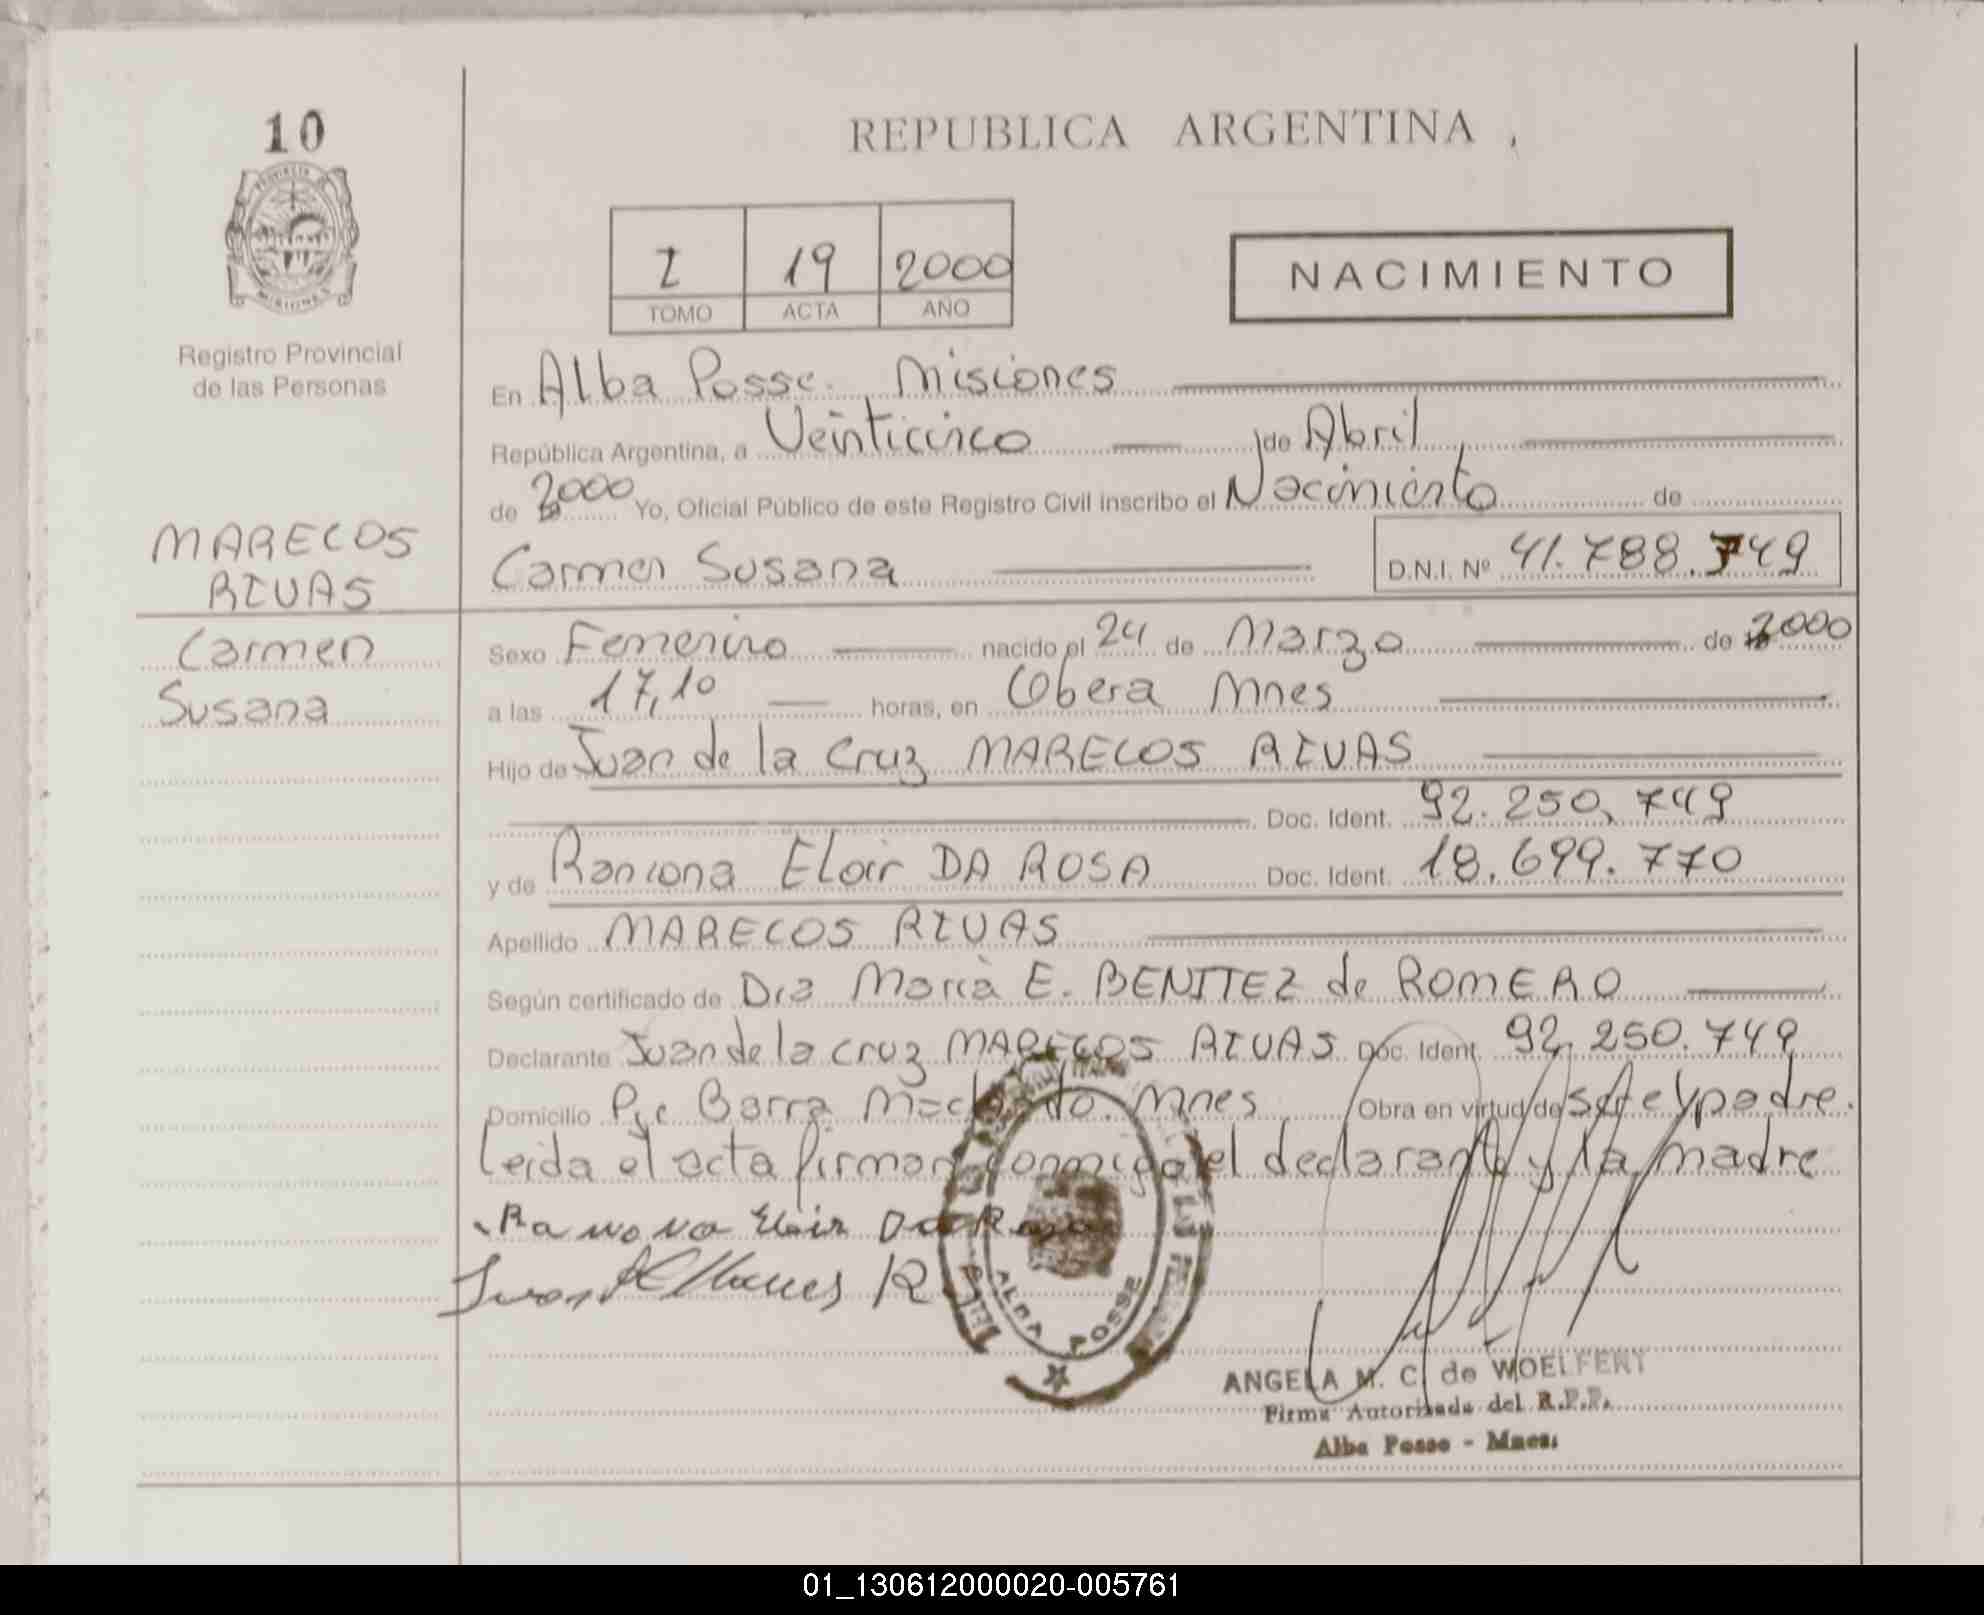 10
REPUBLICA ARGENTINA
I 19 2000
TOMO ACTA AÑO
NACIMIENTO
Registro Provincial
de las Personas
En Alba Posse. Misiones
República Argentina, a Veinticinco de Abril
de 2000 Yo, Oficial Público de este Registro Civil inscribo el Nacimiento de
MARECOS
RIVAS
Carmen Susana D.N.I. Nº 41.788.749
Carmen
Susana
Sexo Femenino nacido el 24 de Marzo de 2000
a las 17,10 horas, en Obera Mnes
Hijo de Juan de la Cruz MARECOS RIVAS
Doc. Ident. 92.250.749
y de Ramona Eloir DA ROSA Doc. Ident. 18.699.770
Apellido MARECOS RIVAS
Según certificado de Dra María E. BENITEZ de ROMERO
Declarante Juan de la Cruz MARECOS RIVAS Doc. Ident. 92.250.749
Domicilio Pje Barra Machado. Mnes Obra en virtud de ser el padre.
Leida el acta firman conmigo el declarante y la madre
Ramona Eloir Da Rosa
ALBA POSSE
ANGELA M. C. de WOELFERT
Firma Autorizada del R.P.P.
Alba Posse - Mnes.
01_130612000020-005761